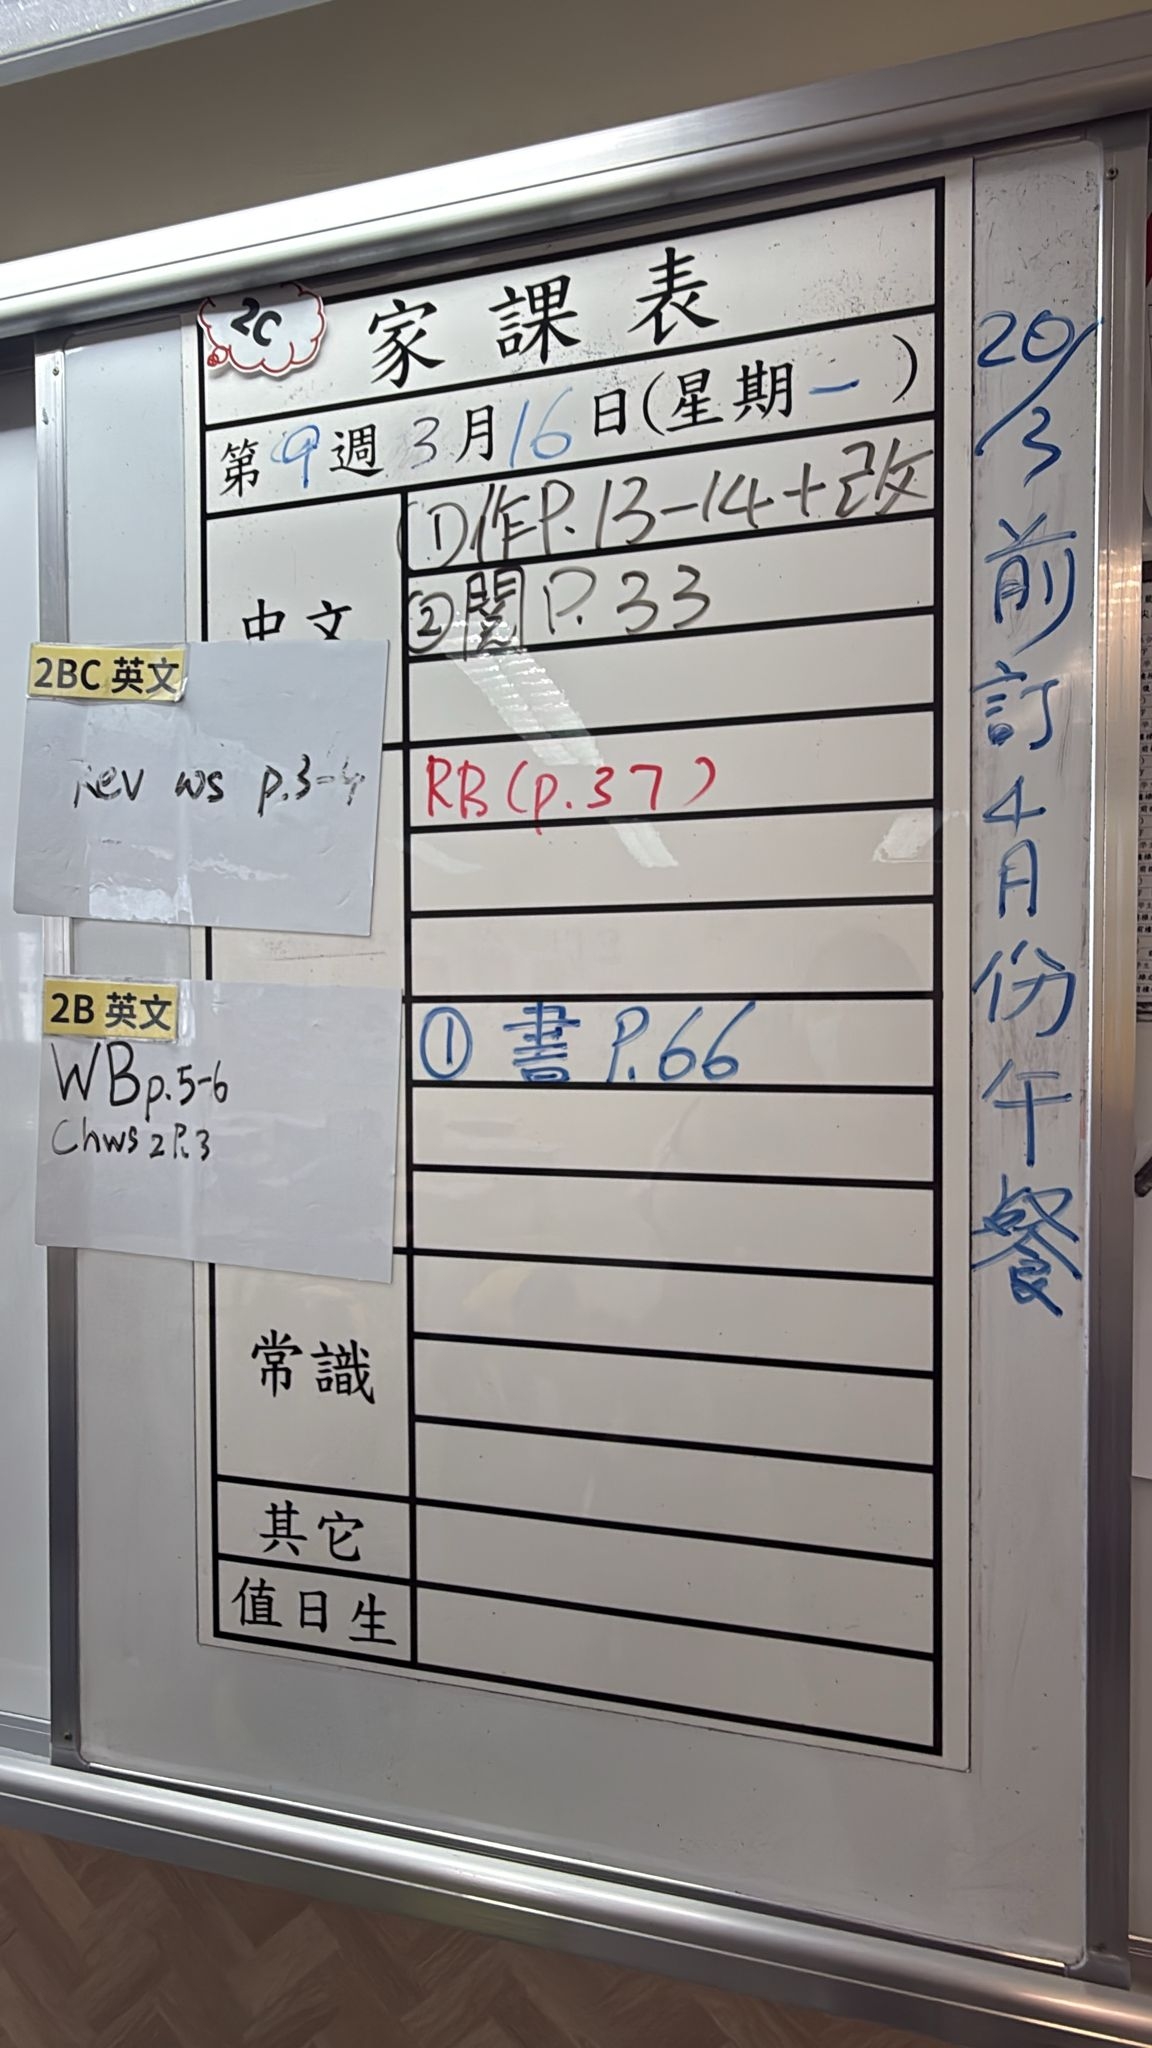 2C
家課表
第9週3月16日(星期一)
中文
(1)作P.13-14+改
(2)閱 P.33
2BC 英文
Rev ws p.3-4
RB(p.37)
2B 英文
WB p.5-6
Chws 2 P.3
① 書 P.66
常識
其它
值日生
20/3前訂4月份午餐